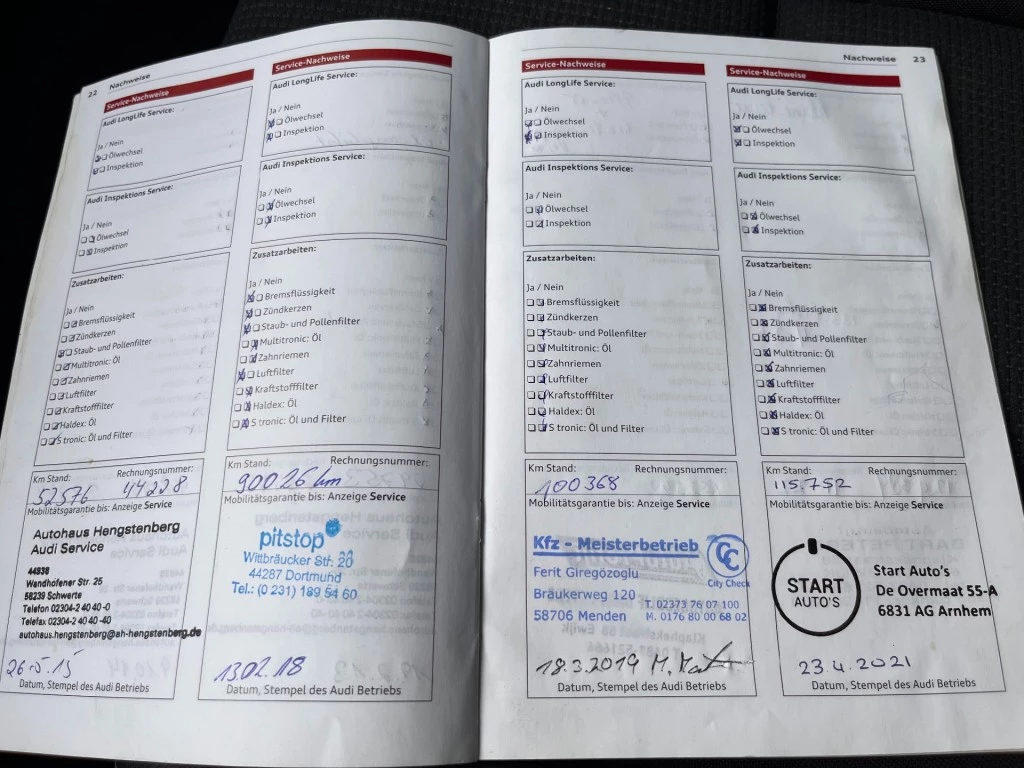 22 Nachweise
Service-Nachweise
Audi LongLife Service:
Ja / Nein
Ölwechsel
Inspektion
Audi Inspektions Service:
Ja / Nein
Ölwechsel
Inspektion
Zusatzarbeiten:
Ja / Nein
Bremsflüssigkeit
Zündkerzen
Staub- und Pollenfilter
Multitronic: Öl
Zahnriemen
Luftfilter
Kraftstofffilter
Haldex: Öl
S tronic: Öl und Filter
Km Stand: Rechnungsnummer:
52576 44228
Mobilitätsgarantie bis: Anzeige Service
Autohaus Hengstenberg
Audi Service
44938
Wandhofener Str. 25
58239 Schwerte
Telefon 02304-2 40 40 -0
Telefax 02304-2 40 40 -40
autohaus.hengstenberg@ah-hengstenberg.de
26-5.15
Datum, Stempel des Audi Betriebs
Service-Nachweise
Audi LongLife Service:
Ja / Nein
Ölwechsel
Inspektion
Audi Inspektions Service:
Ja / Nein
Ölwechsel
Inspektion
Zusatzarbeiten:
Ja / Nein
Bremsflüssigkeit
Zündkerzen
Staub- und Pollenfilter
Multitronic: Öl
Zahnriemen
Luftfilter
Kraftstofffilter
Haldex: Öl
S tronic: Öl und Filter
Km Stand: Rechnungsnummer:
90026 km
Mobilitätsgarantie bis: Anzeige Service
pitstop
Wittbräucker Str. 20
44287 Dortmund
Tel.: (0 231) 189 54 60
13.02.18
Datum, Stempel des Audi Betriebs
Nachweise 23
Service-Nachweise
Audi LongLife Service:
Ja / Nein
Ölwechsel
Inspektion
Audi Inspektions Service:
Ja / Nein
Ölwechsel
Inspektion
Zusatzarbeiten:
Ja / Nein
Bremsflüssigkeit
Zündkerzen
Staub- und Pollenfilter
Multitronic: Öl
Zahnriemen
Luftfilter
Kraftstofffilter
Haldex: Öl
S tronic: Öl und Filter
Km Stand: Rechnungsnummer:
100368
Mobilitätsgarantie bis: Anzeige Service
Kfz - Meisterbetrieb
Ferit Giregözoglu
Bräukerweg 120
58706 Menden
CC
City Check
T. 02373 76 07 100
M. 0176 80 00 68 02
18.3.2019
Datum, Stempel des Audi Betriebs
Service-Nachweise
Audi LongLife Service:
Ja / Nein
Ölwechsel
Inspektion
Audi Inspektions Service:
Ja / Nein
Ölwechsel
Inspektion
Zusatzarbeiten:
Ja / Nein
Bremsflüssigkeit
Zündkerzen
Staub- und Pollenfilter
Multitronic: Öl
Zahnriemen
Luftfilter
Kraftstofffilter
Haldex: Öl
S tronic: Öl und Filter
Km Stand: Rechnungsnummer:
115.752
Mobilitätsgarantie bis: Anzeige Service
START
AUTO'S
Start Auto's
De Overmaat 55-A
6831 AG Arnhem
23.4.2021
Datum, Stempel des Audi Betriebs